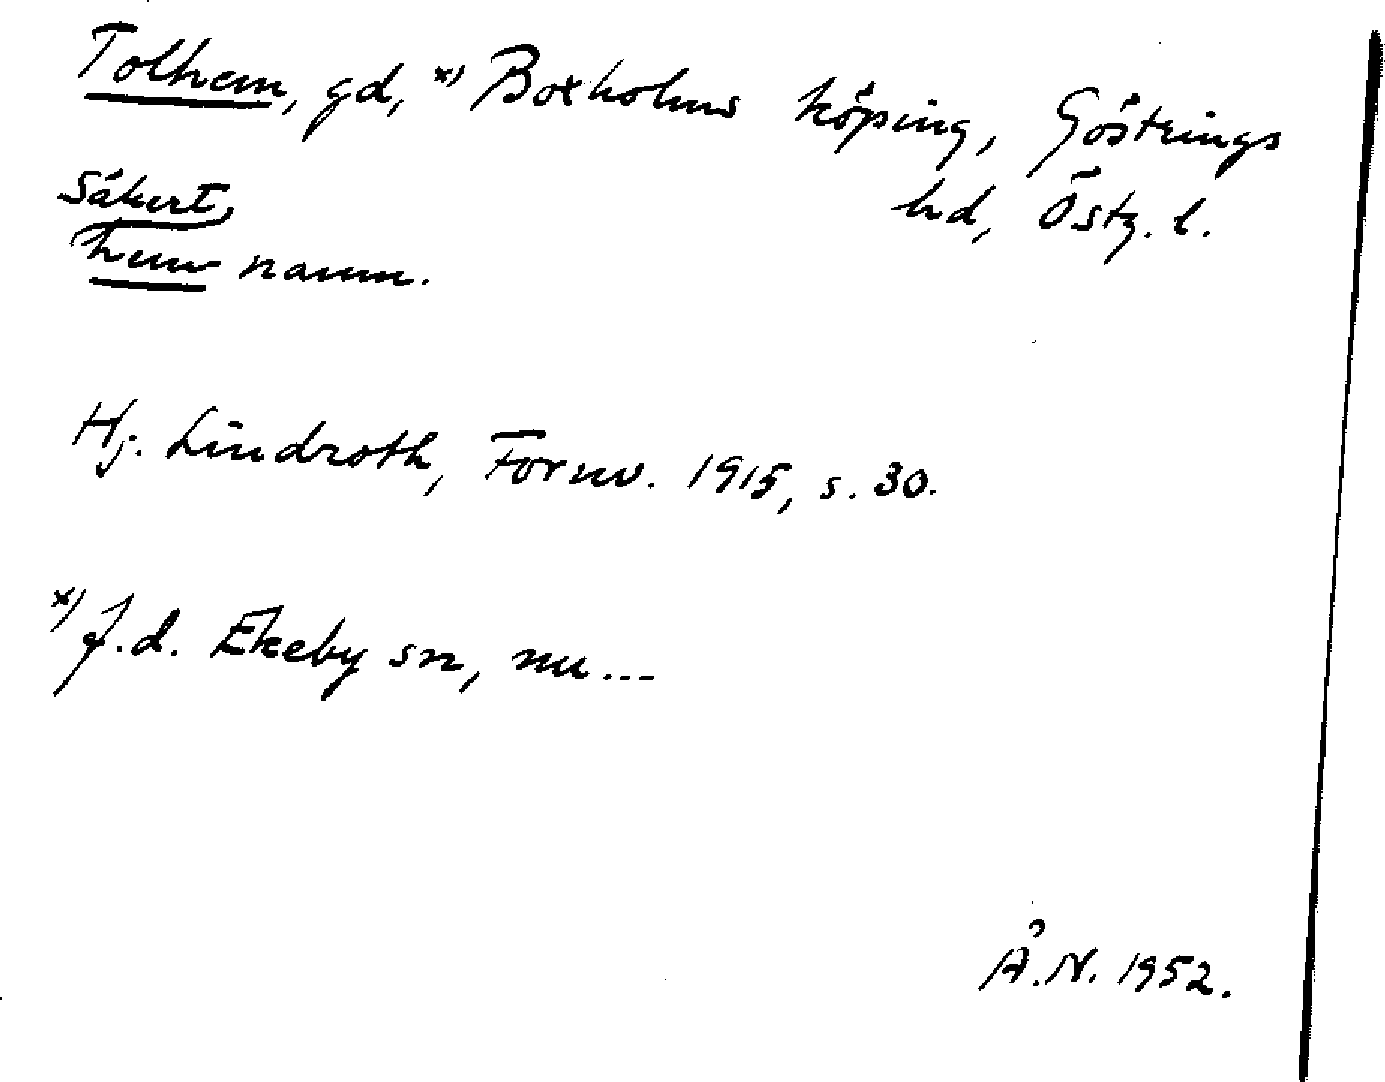 Tolhem, gd, x) Boxholms köping, Göstrings
hd, Östg. l.
Säkert,
hem namn.
Hj. Lindroth, Fornv. 1915, s. 30.
x) f.d. Ekeby sn, nu...
Å.N. 1952.